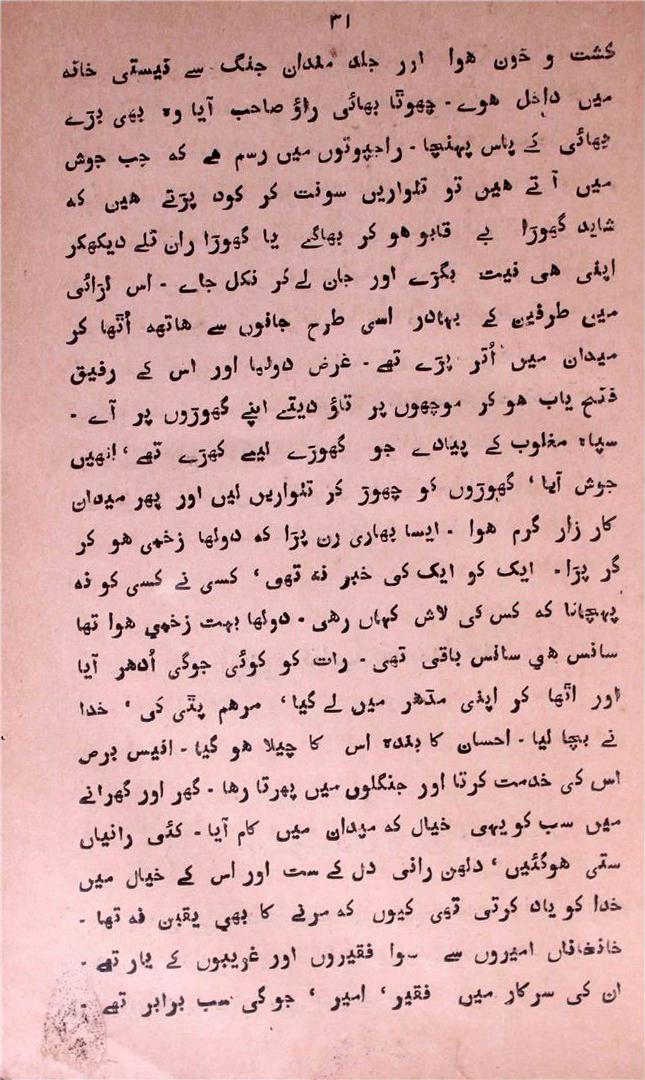 ۳۱
کشت و خون هوا اور جلد میدان جنگ سے نیستی خانه
میں داخل هوے ۔ چھوٹا بھائی راؤ صاحب آیا وہ بھی بڑے
بھائی کے پاس پہنچا ۔ راجپوتوں میں رسم هے که جب جوش
میں آتے هیں تو تلواریں سونت کر کود پڑتے هیں که
شاید گھوڑا بے قابو هو کر بھاگے یا گھوڑا ران تلے دیکھکر
اپنی هی نیت بگڑے اور جان لے کر نکل جاے ۔ اس لڑائی
میں طرفین کے بہادر اسی طرح جانوں سے هاتھه اُٹھا کر
میدان میں اُتر پڑے تھے ۔ غرض دولہا اور اس کے رفیق
فتح یاب هو کر موچھوں پر تاؤ دیتے اپنے گھوڑوں پر آے ۔
سپاہ مغلوب کے پیادے جو گھوڑے لیے کھڑے تھے ، انھیں
جوش آیا ، گھوڑوں کو چھوڑ کر تلواریں لیں اور پھر میدان
کار زار گرم هوا ۔ ایسا بھاری رن پڑا که دولھا زخمی هو کر
گر پڑا ۔ ایک کو ایک کی خبر نه تھی ، کسی نے کسی کو نه
پہچانا که کس کی لاش کہاں رهی ۔ دولها بہت زخمی هوا تھا
سانس هی سانس باقی تھی ۔ رات کو کوئی جوگی اُدھر آیا
اور اٹھا کر اپنی مڈھر میں لے گیا ، مرهم پٹی کی ، خدا
نے بچا لیا ۔ احسان کا بندہ اس کا چیلا هو گیا ۔ انیس برس
اس کی خدمت کرتا اور جنگلوں میں پھرتا رها ۔ گھر اور گھرانے
میں سب کو یہی خیال که میدان میں کام آیا ۔ کئی رانیاں
ستی هوگئیں ، دلھن رانی دل کے ست اور اس کے خیال میں
خدا کو یاد کرتی تھی کیوں که مرنے کا بھی یقین نه تھا ۔
خانخاناں امیروں سے سوا فقیروں اور غریبوں کے یار تھے ۔
ان کی سرکار میں فقیر ، امیر ، جوگی سب برابر تھے ۔